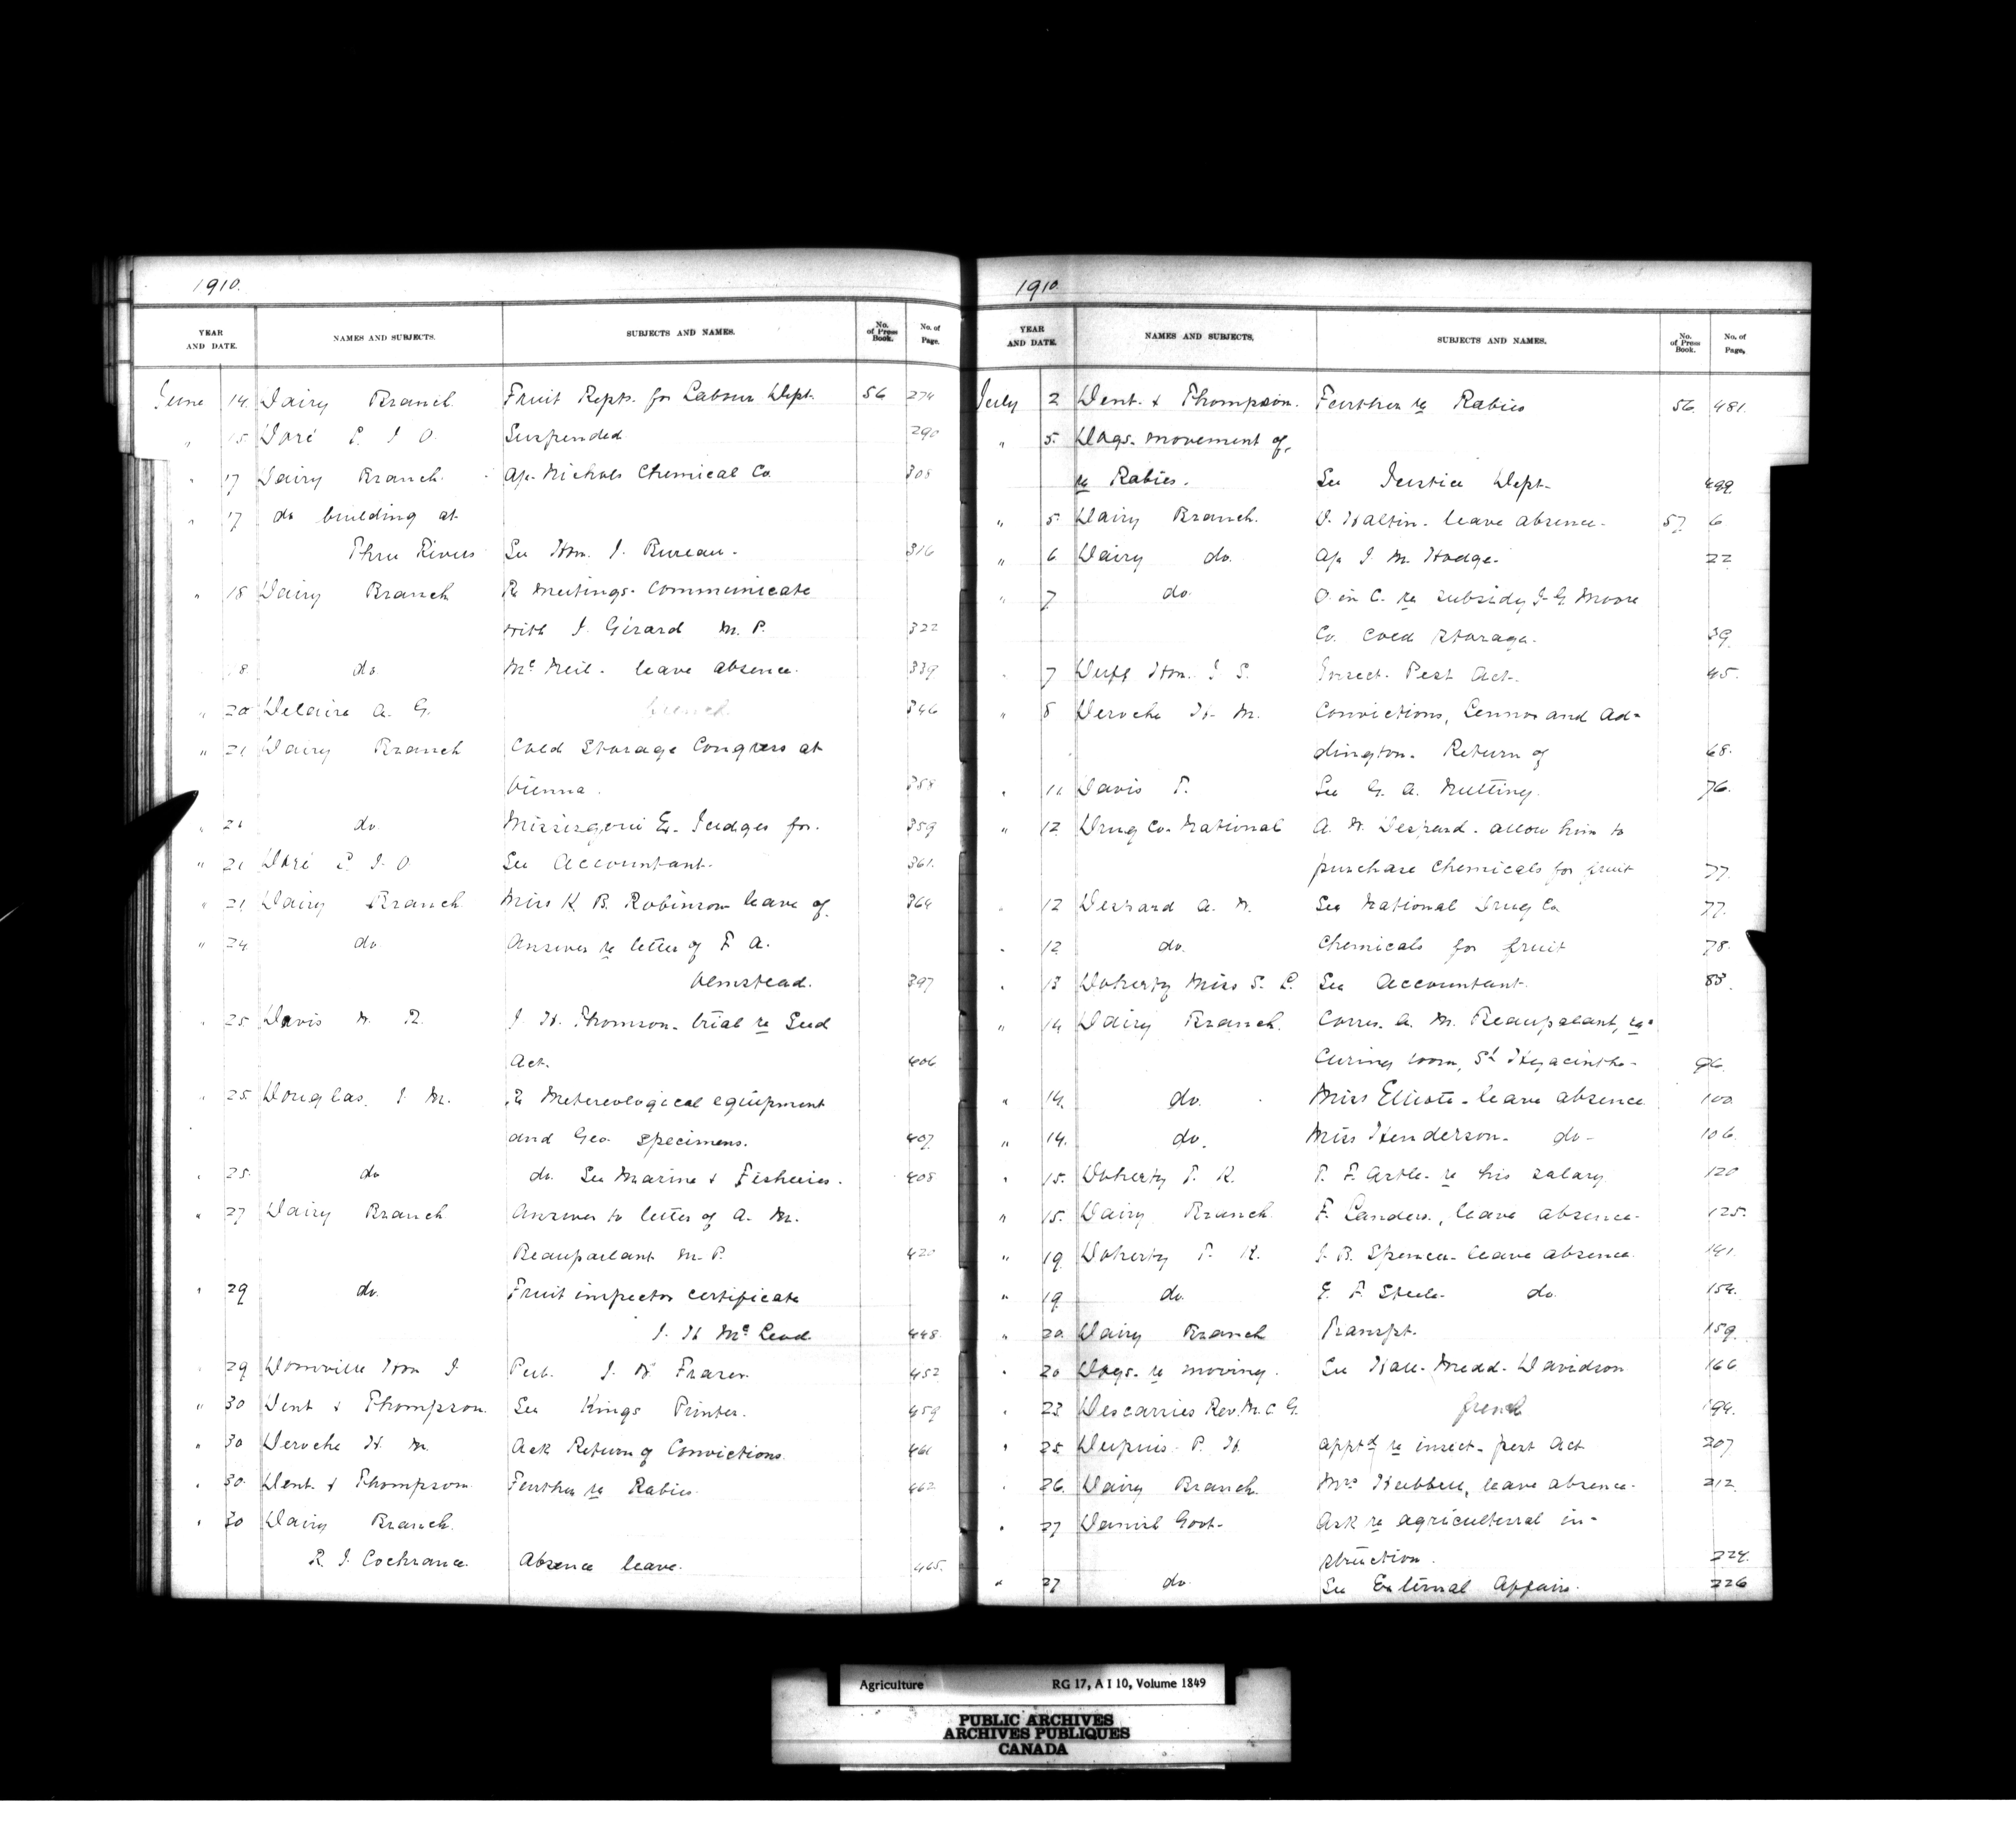 1910.
YEAR AND DATE. NAMES AND SUBJECTS. SUBJECTS AND NAMES. No. of Press Book. No. of Page.
June 14. Dairy Branch. Fruit Repts. for Labour Dept. 56 274
" 15. Doré L. J. O. Suspended 290
" 17 Dairy Branch. Ap. Nichols Chemical Co. 308
" 17 do building at
Three Rivers See Hon. J. Bureau. 316
" 18 Dairy Branch Re Meetings. Communicate
with J. Girard M. P. 322
18. do. McNeil. leave absence. 339
" 20 Delaire A. G. french. 346
" 21 Dairy Branch Cold Storage Congress at
Vienna. 358
" 21 do. Ex. Judges for. 359
" 21 Doré L. J. O See Accountant. 361.
" 21 Dairy Branch Miss K. B. Robinson leave of. 364
" 24 do. Answer re letter of F. A.
Olmstead. 397
" 25 Davis W. R. J. H. Thomson. trial re Seed
Act. 406
" 25 Douglas. J. M. Re Metereological equipment
and Geo. specimens. 407
" 25. do do. See Marine & Fisheries. 408
" 27 Dairy Branch Answer to letter of A. M.
Beauparlant M. P. 420
" 29 do. Fruit inspector certificate
J. H. McLeod 448.
" 29 Domville Hon J Pub. J. W. Fraser. 452
" 30 Dent & Thompson. See Kings Printer. 459
" 30 Deroche H. M. Ack Return of Convictions. 461
" 30. Dent. & Thompson Further re Rabies. 462
" 30 Dairy Branch.
R. J. Cochrance. Absence leave. 465.
1910.
YEAR AND DATE. NAMES AND SUBJECTS. SUBJECTS AND NAMES. No. of Press Book. No. of Page.
July 2 Dent. & Thompson. Further re Rabies 56. 481.
" 5. Dogs. movement of,
re Rabies. See Justice Dept. 499.
" 5. Dairy Branch. leave absence. 57. 6.
" 6 Dairy do. Ap. J. M. Hodge. 22
" 7 do. O. in C. re subsidy J. G. Moore
Co. cold storage. 39.
" 7 Duff Hon. J. S. Insect. Pest Act. 45.
" 8 Deroche H. M. Convictions, Lennox and Ad-
dington. Return of 68.
" 11. Davis T. See G. A. Nutting. 76.
" 12. Drug Co. National A. W. Despard. allow him to
purchase chemicals for fruit 77.
" 12 Despard A. W. See National Drug Co 77.
" 12 do. Chemicals for fruit 78.
" 13 Doherty Miss S. L. See Accountant. 83.
" 14 Dairy Branch. Corres. A. M. Beauparlant, re.
Curing room, St Hyacinthe. 96.
" 14. do. Miss Elliott. leave absence 100.
" 14. do. Miss Henderson. do- 106.
" 15. Doherty T. K. re his salary. 120
" 15. Dairy Branch F. Landers., leave absence. 125.
" 19. Doherty T. K. J. B. Spencer. leave absence. 141.
" 19 do. E. F. Steele. do. 154.
" 20. Dairy Branch Transpt. 159.
" 20 Dogs. re moving. See Hall. Medd. Davidson 166
" 23 Descarries Rev. M. C. G. french 194.
" 25 Dupuis. P. H. apptd re insect. pest act 207
" 26. Dairy Branch. Mrs Hubbell, leave absence. 212.
" 27 Danish Govt. Ask re agricultural in-
struction. 224.
" 27 do. See External Affairs. 226
Agriculture RG 17, A I 10, Volume 1849
PUBLIC ARCHIVES
ARCHIVES PUBLIQUES
CANADA